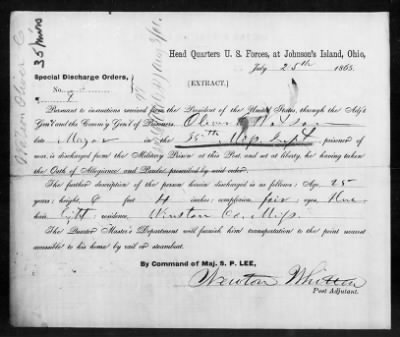 Head Quarters U. S. Forces, at Johnson's Island, Ohio,
July 25th 1865.
Special Discharge Orders,
No.
[EXTRACT.]
Pursuant to instructions received from the President of the United States, through the Adj't
Gen'l and the Comm'y Gen'l of Prisoners, Oliver C Watson
late Major in the 35th Miss. Inft prisoner of
war, is discharged from the Military Prison at this Post, and set at liberty, he having taken
the Oath of Allegiance and Parole prescribed by said order.
The further description of the person herein discharged is as follows: Age, 25
years; height, feet 4 inches; complexion fair; eyes, blue
hair Light residence, Winston Co. Miss.
The Quarter Master's Department will furnish him transportation to the point nearest
accessible to his home by rail or steamboat.
By Command of Maj. S. P. LEE,
Newton Whitten
Post Adjutant.
Watson Oliver C
35 Miss